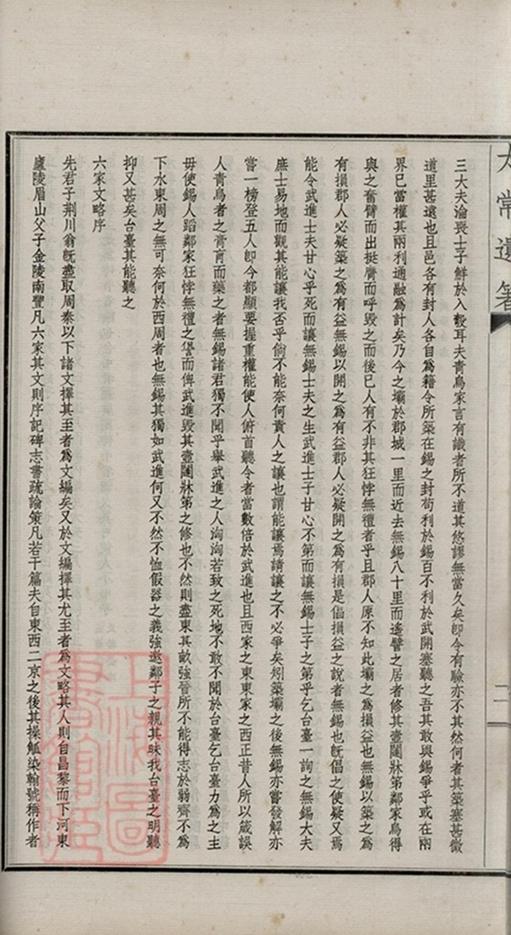 太常遺箸
三大夫淪喪士子鮮於入彀耳夫青烏家言有識者所不道其悠謬無當久矣卽令有驗亦不其然何者其築塞甚微
道里甚遠也且邑各有封人各自為藉令所築在錫之封苟利於錫百不利於武開塞聽之吾其敢與錫爭乎或在兩
界已當權其兩利通融為計矣乃今之壩於郡城一里而近去無錫八十里而遙譬之居者修其壼闥牀笫鄰家烏得
與之奮臂而出挺脣而呼毀之而後已人有不非其狂悖無禮者乎且郡人原不知此壩之為損益也無錫以築之為
有損郡人必疑築之為有益無錫以開之為有益郡人必疑開之為有損是倡損益之說者無錫也旣倡之使疑又焉
能令武進士夫甘心乎死而讓無錫士夫之生武進士子甘心不第而讓無錫士子之第乎乞台臺一詢之無錫大夫
庶士易地而觀其能讓我否乎倘不能奈何責人之讓也謂能讓焉請讓之不必爭矣矧築壩之後無錫亦嘗發解亦
嘗一榜登五人卽今都顯要握重權能使人俯首聽令者當數倍於武進也且西家之東東家之西正昔人所以箴誤
人青烏者之膏肓而藥之者無錫諸君獨不聞乎舉武進之人洶洶若致之死地不敢不聞於台臺乞台臺力為之主
毋使錫人蹈鄰家狂悖無禮之愆而俾武進毀其壼闥牀笫之修也不然則盡東其畝強晉所不能得志於弱齊不為
下水東周之無可奈何於西周者也無錫其獨如武進何又不然不恤假器之義強逑鄰子之親其昧我台臺之明聽
抑又甚矣台臺其能聽之
六家文略序
先君子荆川翁旣盡取周秦以下諸文擇其至者為文編矣又於文編擇其尤至者為文略其人則自昌黎而下河東
廬陵眉山父子金陵南豐凡六家其文則序記碑志書疏論策凡若干篇夫自東西二京之後其操觚染翰號稱作者